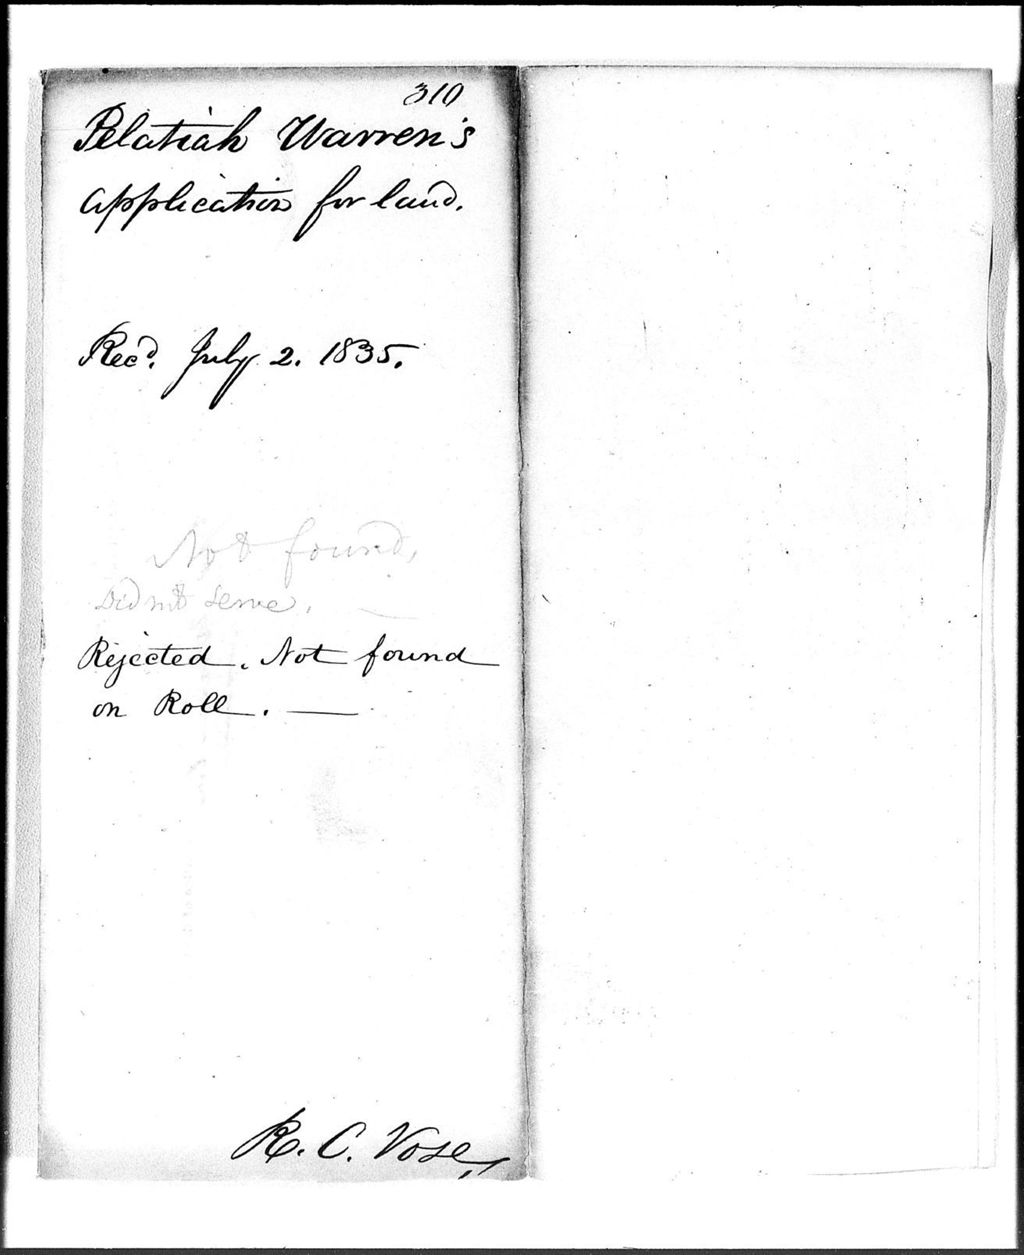 310
Pelatiah Warren's
application for land.
Rec'd. July 2. 1835.
Not found,
Did not serve.
Rejected. Not found
on Roll.
R. C. Vose,